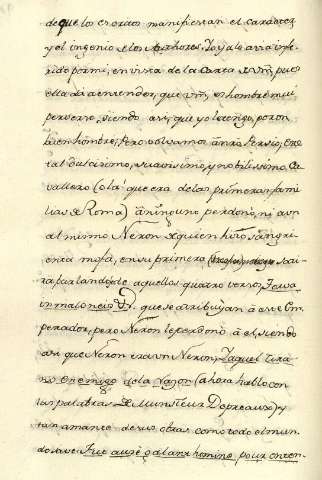 de que los escritos manifiestan el caracter
y el ingenio de los Authores. Yo ya le avia infe-
rido por mi, en vista de la Carta de Vm, pues
ella da a entender, que Vm, es hombre mui
perverso, siendo assi, que yo le tengo, por un
buen hombre, Pero bolvamos à nro Persio, Este
tal dulcissimo, suavissimo, y nobilissimo, Ca-
vallero (olá! que era de las primeras fami
lias de Roma) à ninguno perdonò, ni aun
al mismo Neron de quien hizo sangri-
enta mofa, en su primera sati-
ra, parlandose de aquellos quatro versos, Torva
mimaloneis &. que se atribuyan à este Em-
perador, pero Neron le perdonò à el, siendo
assi que Neron era un Neron, Y aquel tira-
no enemigo de la razon (ahora hablo con
las palabras de Munsieur Depreaux) y
tan amante de sus obras como todo el mun-
do save Fut assè galant homme pour enten-